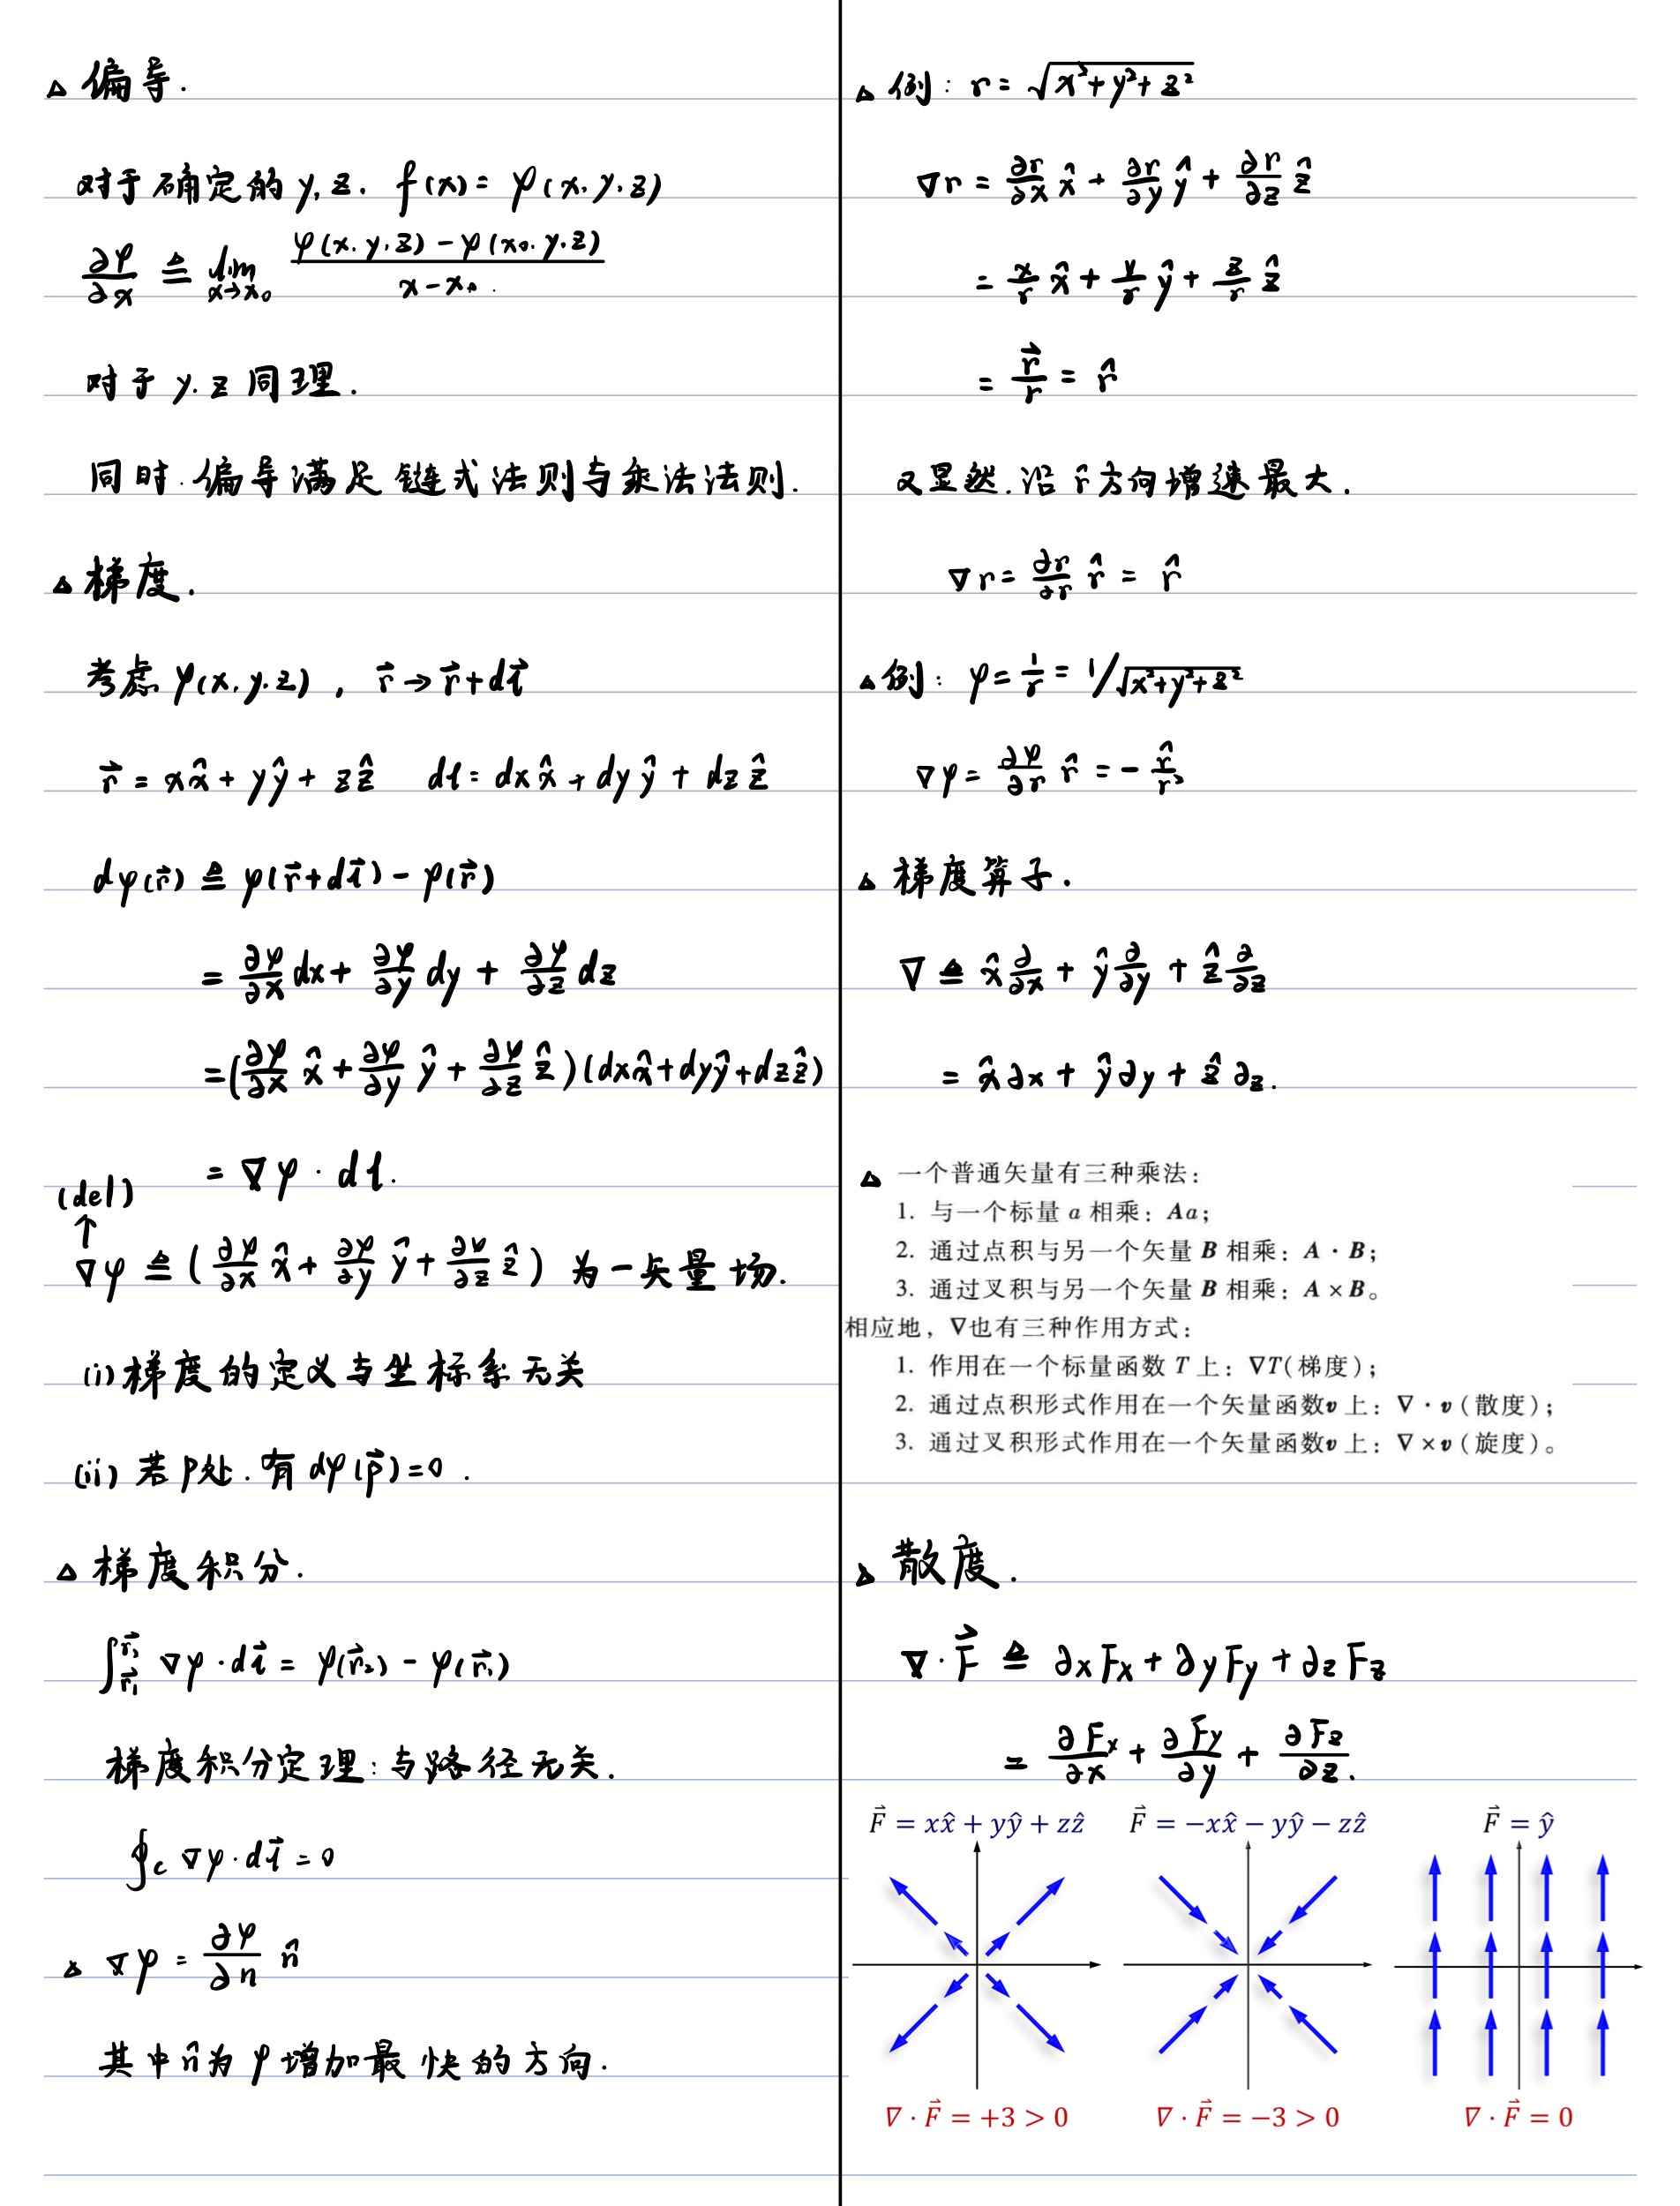 △ 偏导.
对于确定的 y, z. f(x) = φ(x, y, z)
∂φ/∂x ≜ lim x→x₀ φ(x, y, z) − φ(x₀, y, z) / x − x₀.
对于 y. z 同理.
同时. 偏导满足链式法则与乘法法则.
△ 梯度.
考虑 φ(x, y, z), r⃗ → r⃗ + dl⃗
r⃗ = xx̂ + yŷ + zẑ dl = dx x̂ + dy ŷ + dz ẑ
dφ(r⃗) ≜ φ(r⃗ + dl⃗) − φ(r⃗)
= ∂φ/∂x dx + ∂φ/∂y dy + ∂φ/∂z dz
= (∂φ/∂x x̂ + ∂φ/∂y ŷ + ∂φ/∂z ẑ)(dx x̂ + dy ŷ + dz ẑ)
= ∇φ · dl.
(del)
↑
∇φ ≜ (∂φ/∂x x̂ + ∂φ/∂y ŷ + ∂φ/∂z ẑ) 为一矢量场.
(i) 梯度的定义与坐标系无关
(ii) 若 P处. 有 dφ(p⃗) = 0.
△ 梯度积分.
∫_{r⃗₁}^{r⃗₂} ∇φ · dl⃗ = φ(r⃗₂) − φ(r⃗₁)
梯度积分定理: 与路径无关.
∮c ∇φ · dl⃗ = 0
△ ∇φ = ∂φ/∂n n̂
其中 n̂ 为 φ 增加最快的方向.
△ 例: r = √(x² + y² + z²)
∇r = ∂r/∂x x̂ + ∂r/∂y ŷ + ∂r/∂z ẑ
= x/r x̂ + y/r ŷ + z/r ẑ
= r⃗/r = r̂
又显然. 沿 r̂ 方向增速最大.
∇r = ∂r/∂r r̂ = r̂
△ 例: φ = 1/r = 1/√(x² + y² + z²)
∇φ = ∂φ/∂r r̂ = − r̂/r²
△ 梯度算子.
∇ ≜ x̂ ∂/∂x + ŷ ∂/∂y + ẑ ∂/∂z
= x̂ ∂x + ŷ ∂y + ẑ ∂z.
△ 一个普通矢量有三种乘法:
1. 与一个标量 a 相乘: Aa;
2. 通过点积与另一个矢量 B 相乘: A · B;
3. 通过叉积与另一个矢量 B 相乘: A × B。
相应地, ∇也有三种作用方式:
1. 作用在一个标量函数 T 上: ∇T(梯度);
2. 通过点积形式作用在一个矢量函数v 上: ∇ · v (散度);
3. 通过叉积形式作用在一个矢量函数v 上: ∇ × v (旋度)。
△ 散度.
∇ · F⃗ ≜ ∂x Fx + ∂y Fy + ∂z Fz
= ∂Fx/∂x + ∂Fy/∂y + ∂Fz/∂z.
F⃗ = xx̂ + yŷ + zẑ F⃗ = −xx̂ − yŷ − zẑ F⃗ = ŷ
∇ · F⃗ = +3 > 0 ∇ · F⃗ = −3 > 0 ∇ · F⃗ = 0